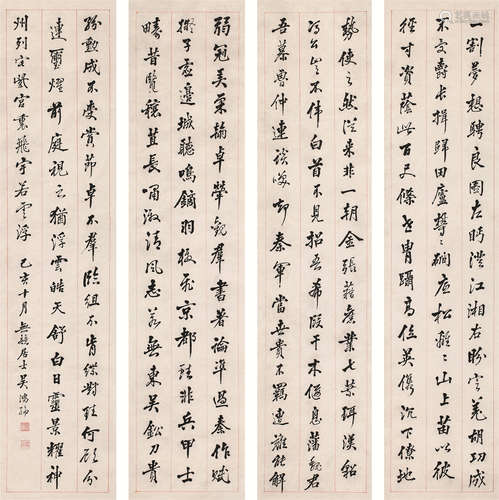 一割夢想騁良圖左眄澄江湘右定羌胡功成
不受爵長揖歸田廬鬱鬱澗底松離離山上苗以彼
徑寸資蔭此百尺條世胄躡高位英俊沉下僚地
勢使之然從來非一朝金張藉舊業七葉珥漢貂
馮公豈不偉白首不見招吾希段干木偃息藩魏君
吾慕魯仲連談笑却秦軍當世貴不羈遭難能解
弱冠弄柔翰卓犖觀羣書著論準過秦作賦
擬子虛邊城聽鳴鏑羽檄飛京都雖非兵甲士
疇昔覽穰苴長嘯激清風志若無東吳鉛刀貴
紛勳成不受賞節卓不羣臨組不肯緤對珪何顧分
連璽燿前庭視之猶浮雲皓天舒白日靈景耀神
州列宅紫宮裏飛宇若雲浮 己亥十月 居士吳